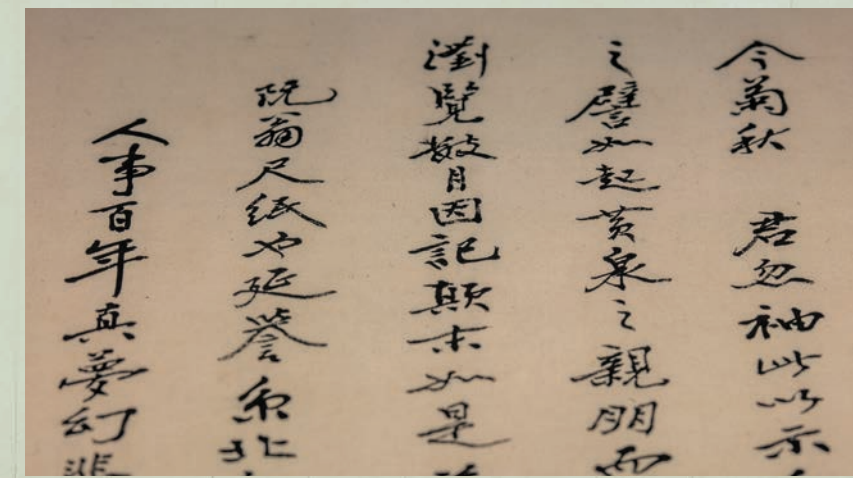 今菊秋 君忽袖此以示
之譬如起黄泉之親朋而
瀏覽數月因記顛末如是
翁尺紙也延譽
人事百年真夢幻悲